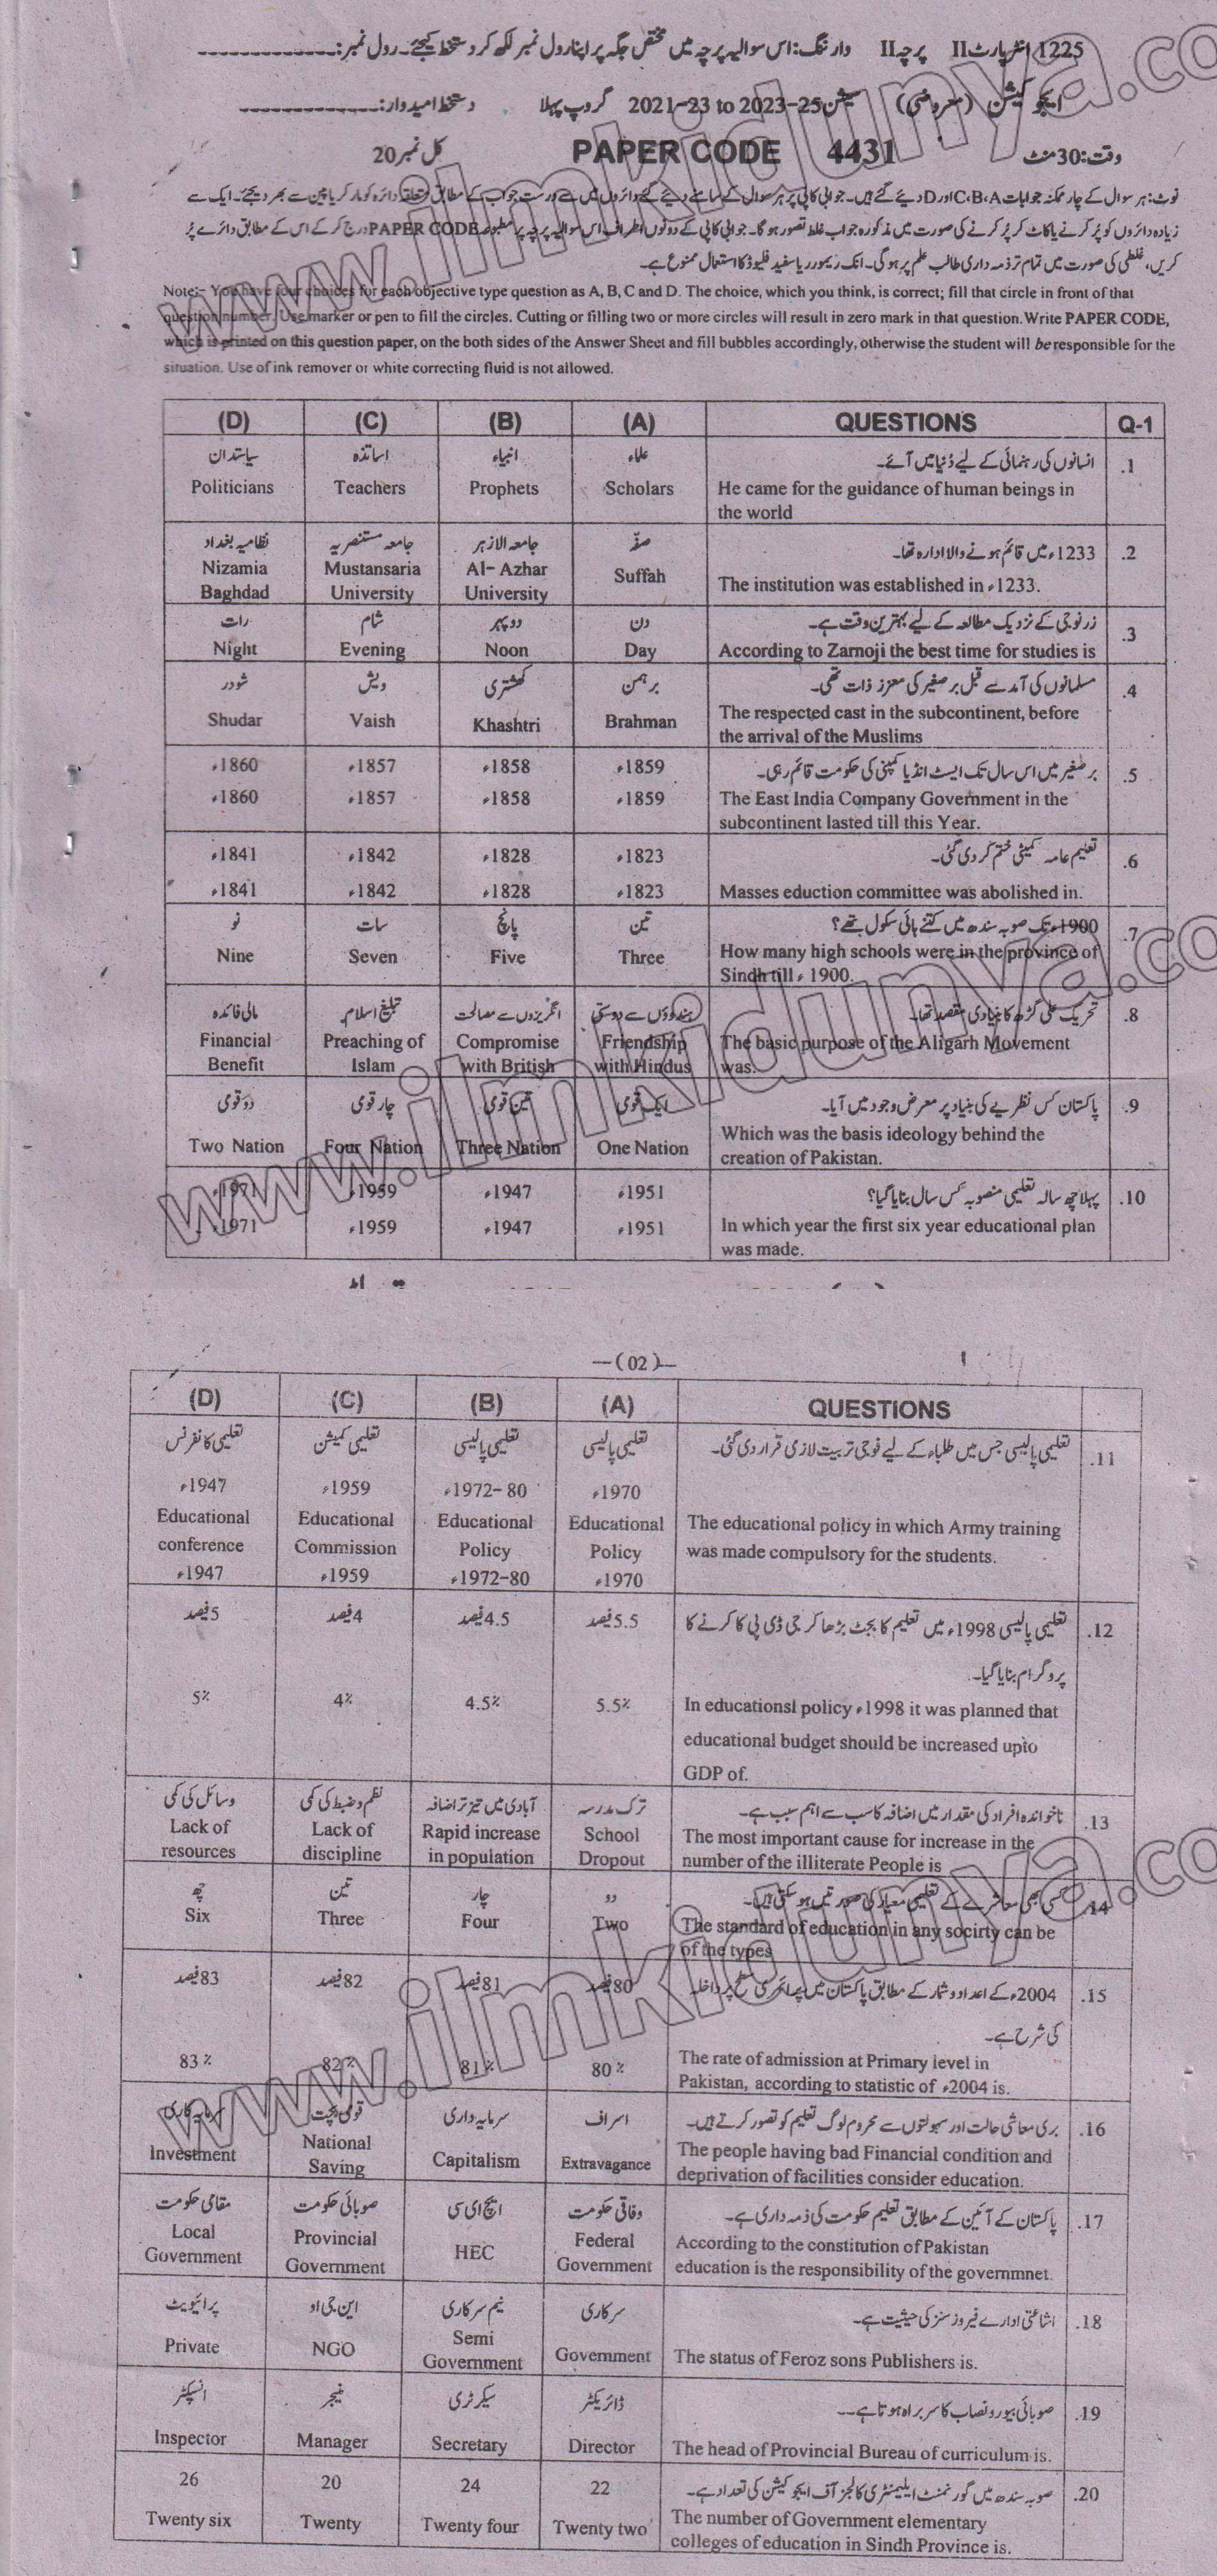 1225 انٹر پارٹ II پرچہ II وارننگ: اس سوالیہ پرچہ میں مختص جگہ پر اپنا رول نمبر لکھ کر دستخط کیجئے۔ رول نمبر:
ایجوکیشن (معروضی) سیشن 2021-23 to 2023-25 گروپ پہلا دستخط امیدوار:
وقت: 30 منٹ PAPER CODE 4431 کل نمبر 20
نوٹ: ہر سوال کے چار ممکنہ جوابات C،B،A اور D دیئے گئے ہیں۔ جوابی کاپی پر ہر سوال کے سامنے دیئے گئے دائروں میں سے درست جواب کے مطابق متعلقہ دائرہ کو مارکر یا پین سے بھر دیجئے۔ ایک سے
زیادہ دائروں کو پُر کرنے یا کاٹ کر پُر کرنے کی صورت میں مذکورہ جواب غلط تصور ہو گا۔ جوابی کاپی کے دونوں اطراف اس سوالیہ پرچہ پر مطبوعہ PAPER CODE درج کر کے اس کے مطابق دائرے پُر
کریں، غلطی کی صورت میں تمام تر ذمہ داری طالب علم پر ہو گی۔ انک ریموور یا سفید فلیوڈ کا استعمال ممنوع ہے۔
Note:- You have four choices for each objective type question as A, B, C and D. The choice, which you think, is correct; fill that circle in front of that
question number. Use marker or pen to fill the circles. Cutting or filling two or more circles will result in zero mark in that question. Write PAPER CODE,
which is printed on this question paper, on the both sides of the Answer Sheet and fill bubbles accordingly, otherwise the student will be responsible for the
situation. Use of ink remover or white correcting fluid is not allowed.
(D) (C) (B) (A) QUESTIONS Q-1
سیاستدان اساتذہ انبیاء علماء انسانوں کی رہنمائی کے لیے دُنیا میں آئے۔ .1
Politicians Teachers Prophets Scholars He came for the guidance of human beings in
the world
نظامیہ بغداد جامعہ مستنصریہ جامعہ الازہر صفّہ 1233ء میں قائم ہونے والا ادارہ تھا۔ .2
Nizamia Mustansaria Al- Azhar Suffah The institution was established in ء1233.
Baghdad University University
رات شام دوپہر دن زرنوجی کے نزدیک مطالعہ کے لیے بہترین وقت ہے۔ .3
Night Evening Noon Day According to Zarnoji the best time for studies is
شودر ویش کھشتری برہمن مسلمانوں کی آمد سے قبل برصغیر کی معزز ذات تھی۔ .4
Shudar Vaish Khashtri Brahman The respected cast in the subcontinent, before
the arrival of the Muslims
ء1860 ء1857 ء1858 ء1859 برصغیر میں اس سال تک ایسٹ انڈیا کمپنی کی حکومت قائم رہی۔ .5
ء1860 ء1857 ء1858 ء1859 The East India Company Government in the
subcontinent lasted till this Year.
ء1841 ء1842 ء1828 ء1823 تعلیم عامہ کمیٹی ختم کر دی گئی۔ .6
ء1841 ء1842 ء1828 ء1823 Masses eduction committee was abolished in.
نو سات پانچ تین 1900ء تک صوبہ سندھ میں کتنے ہائی سکول تھے؟ .7
Nine Seven Five Three How many high schools were in the province of
Sindh till ء 1900.
مالی فائدہ تبلیغ اسلام انگریزوں سے مصالحت ہندوؤں سے دوستی تحریک علی گڑھ کا بنیادی مقصد تھا۔ .8
Financial Preaching of Compromise Friendship The basic purpose of the Aligarh Movement
Benefit Islam with British with Hindus was.
دو قومی چار قومی تین قومی ایک قومی پاکستان کس نظریے کی بنیاد پر معرض وجود میں آیا۔ .9
Two Nation Four Nation Three Nation One Nation Which was the basis ideology behind the
creation of Pakistan.
ء1971 ء1959 ء1947 ء1951 پہلا چھ سالہ تعلیمی منصوبہ کس سال بنایا گیا؟ .10
ء1971 ء1959 ء1947 ء1951 In which year the first six year educational plan
was made.
---(02)---
(D) (C) (B) (A) QUESTIONS
تعلیمی کانفرنس تعلیمی کمیشن تعلیمی پالیسی تعلیمی پالیسی تعلیمی پالیسی جس میں طلباء کے لیے فوجی تربیت لازمی قرار دی گئی۔ .11
ء1947 ء1959 ء1972-80 ء1970
Educational Educational Educational Educational The educational policy in which Army training
conference Commission Policy Policy was made compulsory for the students.
ء1947 ء1959 ء1972-80 ء1970
5فیصد 4فیصد 4.5فیصد 5.5فیصد تعلیمی پالیسی 1998ء میں تعلیم کا بجٹ بڑھا کر جی ڈی پی کا کرنے کا .12
پروگرام بنایا گیا۔
5% 4% 4.5% 5.5% In educationsl policy ء1998 it was planned that
educational budget should be increased upto
GDP of.
وسائل کی کمی نظم و ضبط کی کمی آبادی میں تیز تر اضافہ ترک مدرسہ ناخواندہ افراد کی مقدار میں اضافہ کا سب سے اہم سبب ہے۔ .13
Lack of Lack of Rapid increase School The most important cause for increase in the
resources discipline in population Dropout number of the illiterate People is
چھ تین چار دو کسی بھی معاشرے کے تعلیمی معیار کی صورتیں ہو سکتی ہیں۔ .14
Six Three Four Two The standard of education in any socirty can be
of the types
83فیصد 82فیصد 81فیصد 80فیصد 2004ء کے اعداد و شمار کے مطابق پاکستان میں پرائمری سطح پر داخلہ .15
کی شرح ہے۔
83% 82% 81% 80% The rate of admission at Primary level in
Pakistan, according to statistic of ء2004 is.
سرمایہ کاری قومی بچت سرمایہ داری اسراف بری معاشی حالت اور سہولتوں سے محروم لوگ تعلیم کو تصور کرتے ہیں۔ .16
Investment National Capitalism Extravagance The people having bad Financial condition and
Saving deprivation of facilities consider education.
مقامی حکومت صوبائی حکومت ایچ ای سی وفاقی حکومت پاکستان کے آئین کے مطابق تعلیم حکومت کی ذمہ داری ہے۔ .17
Local Provincial HEC Federal According to the constitution of Pakistan
Government Government Government education is the responsibility of the governmnet.
پرائیویٹ این جی او نیم سرکاری سرکاری اشاعتی ادارے فیروز سنز کی حیثیت ہے۔ .18
Private NGO Semi Government Government The status of Feroz sons Publishers is.
انسپکٹر منیجر سیکرٹری ڈائریکٹر صوبائی بیورو نصاب کا سربراہ ہوتا ہے۔۔ .19
Inspector Manager Secretary Director The head of Provincial Bureau of curriculum is.
26 20 24 22 صوبہ سندھ میں گورنمنٹ ایلیمنٹری کالجز آف ایجوکیشن کی تعداد ہے۔ .20
Twenty six Twenty Twenty four Twenty two The number of Government elementary
colleges of education in Sindh Province is.